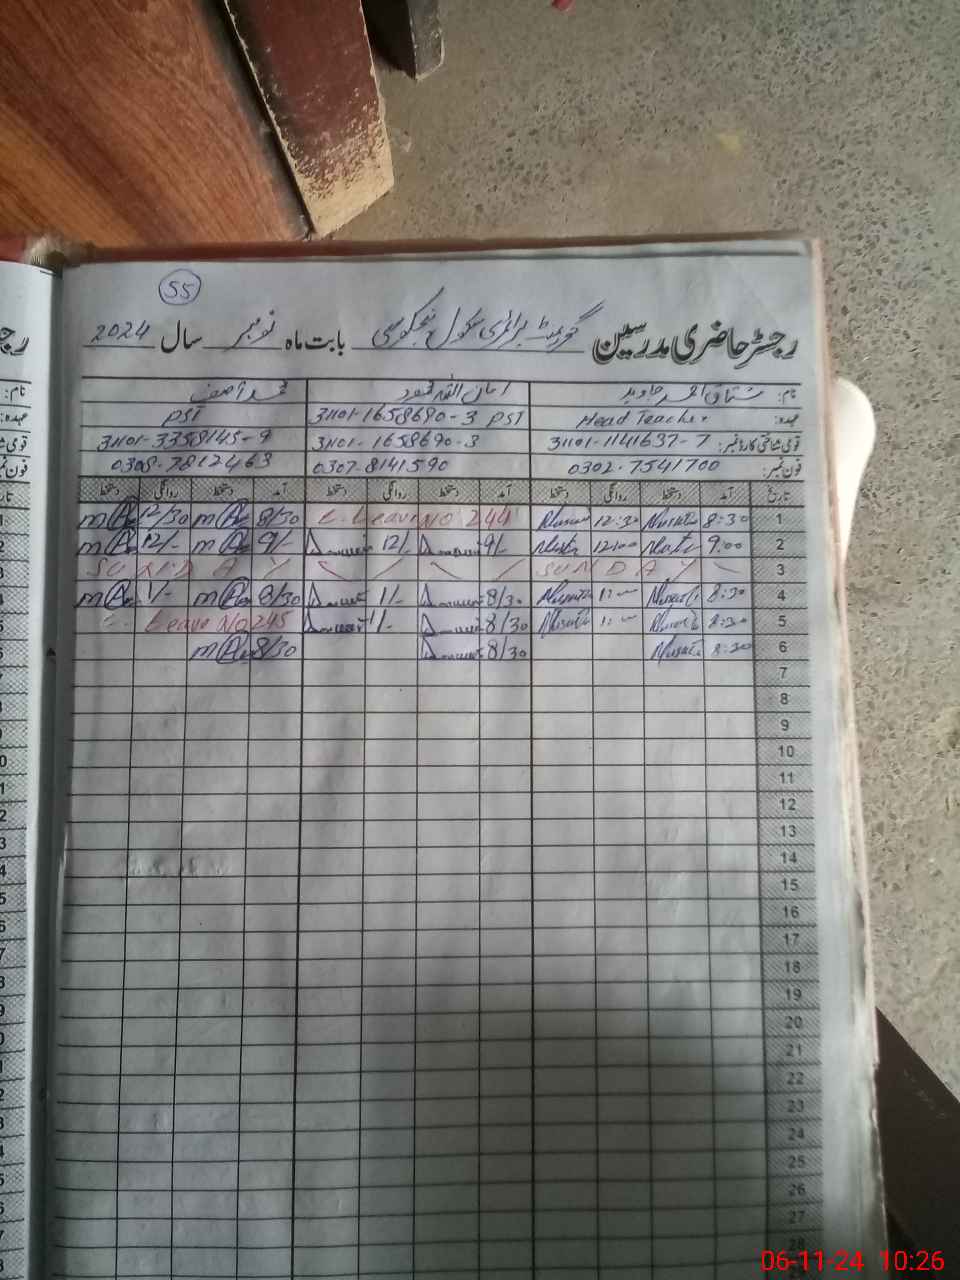 55
رجسٹر حاضری مدرسین گورنمنٹ پرائمری سکول بابت ماہ نومبر سال 2024
نام: مشتاق احمد جاوید امان اللہ محمود محمد آصف
عہدہ: Head Teacher 31101-1658690-3 PST PST
قومی شناختی کارڈ نمبر: 31101-1141637-7 31101-1658690-3 31101-3358145-9
فون نمبر: 0302-7541700 0307-8141590 0308-7812463
تاریخ آمد دستخط روانگی دستخط آمد دستخط روانگی دستخط آمد دستخط روانگی دستخط
1 8:30 12:30 C. Leave NO 244 8/30 12/30
2 9:00 12:00 9/- 12/- 9/- 12/-
3 SUNDAY SUNDAY
4 8:30 1:00 8/30 1/- 8/30 1/-
5 8:30 1:00 8/30 1/- Leave NO 245
6 8:30 8/30 8/30
7
8
9
10
11
12
13
14
15
16
17
18
19
20
21
22
23
24
25
26
27
28
06-11-24 10:26